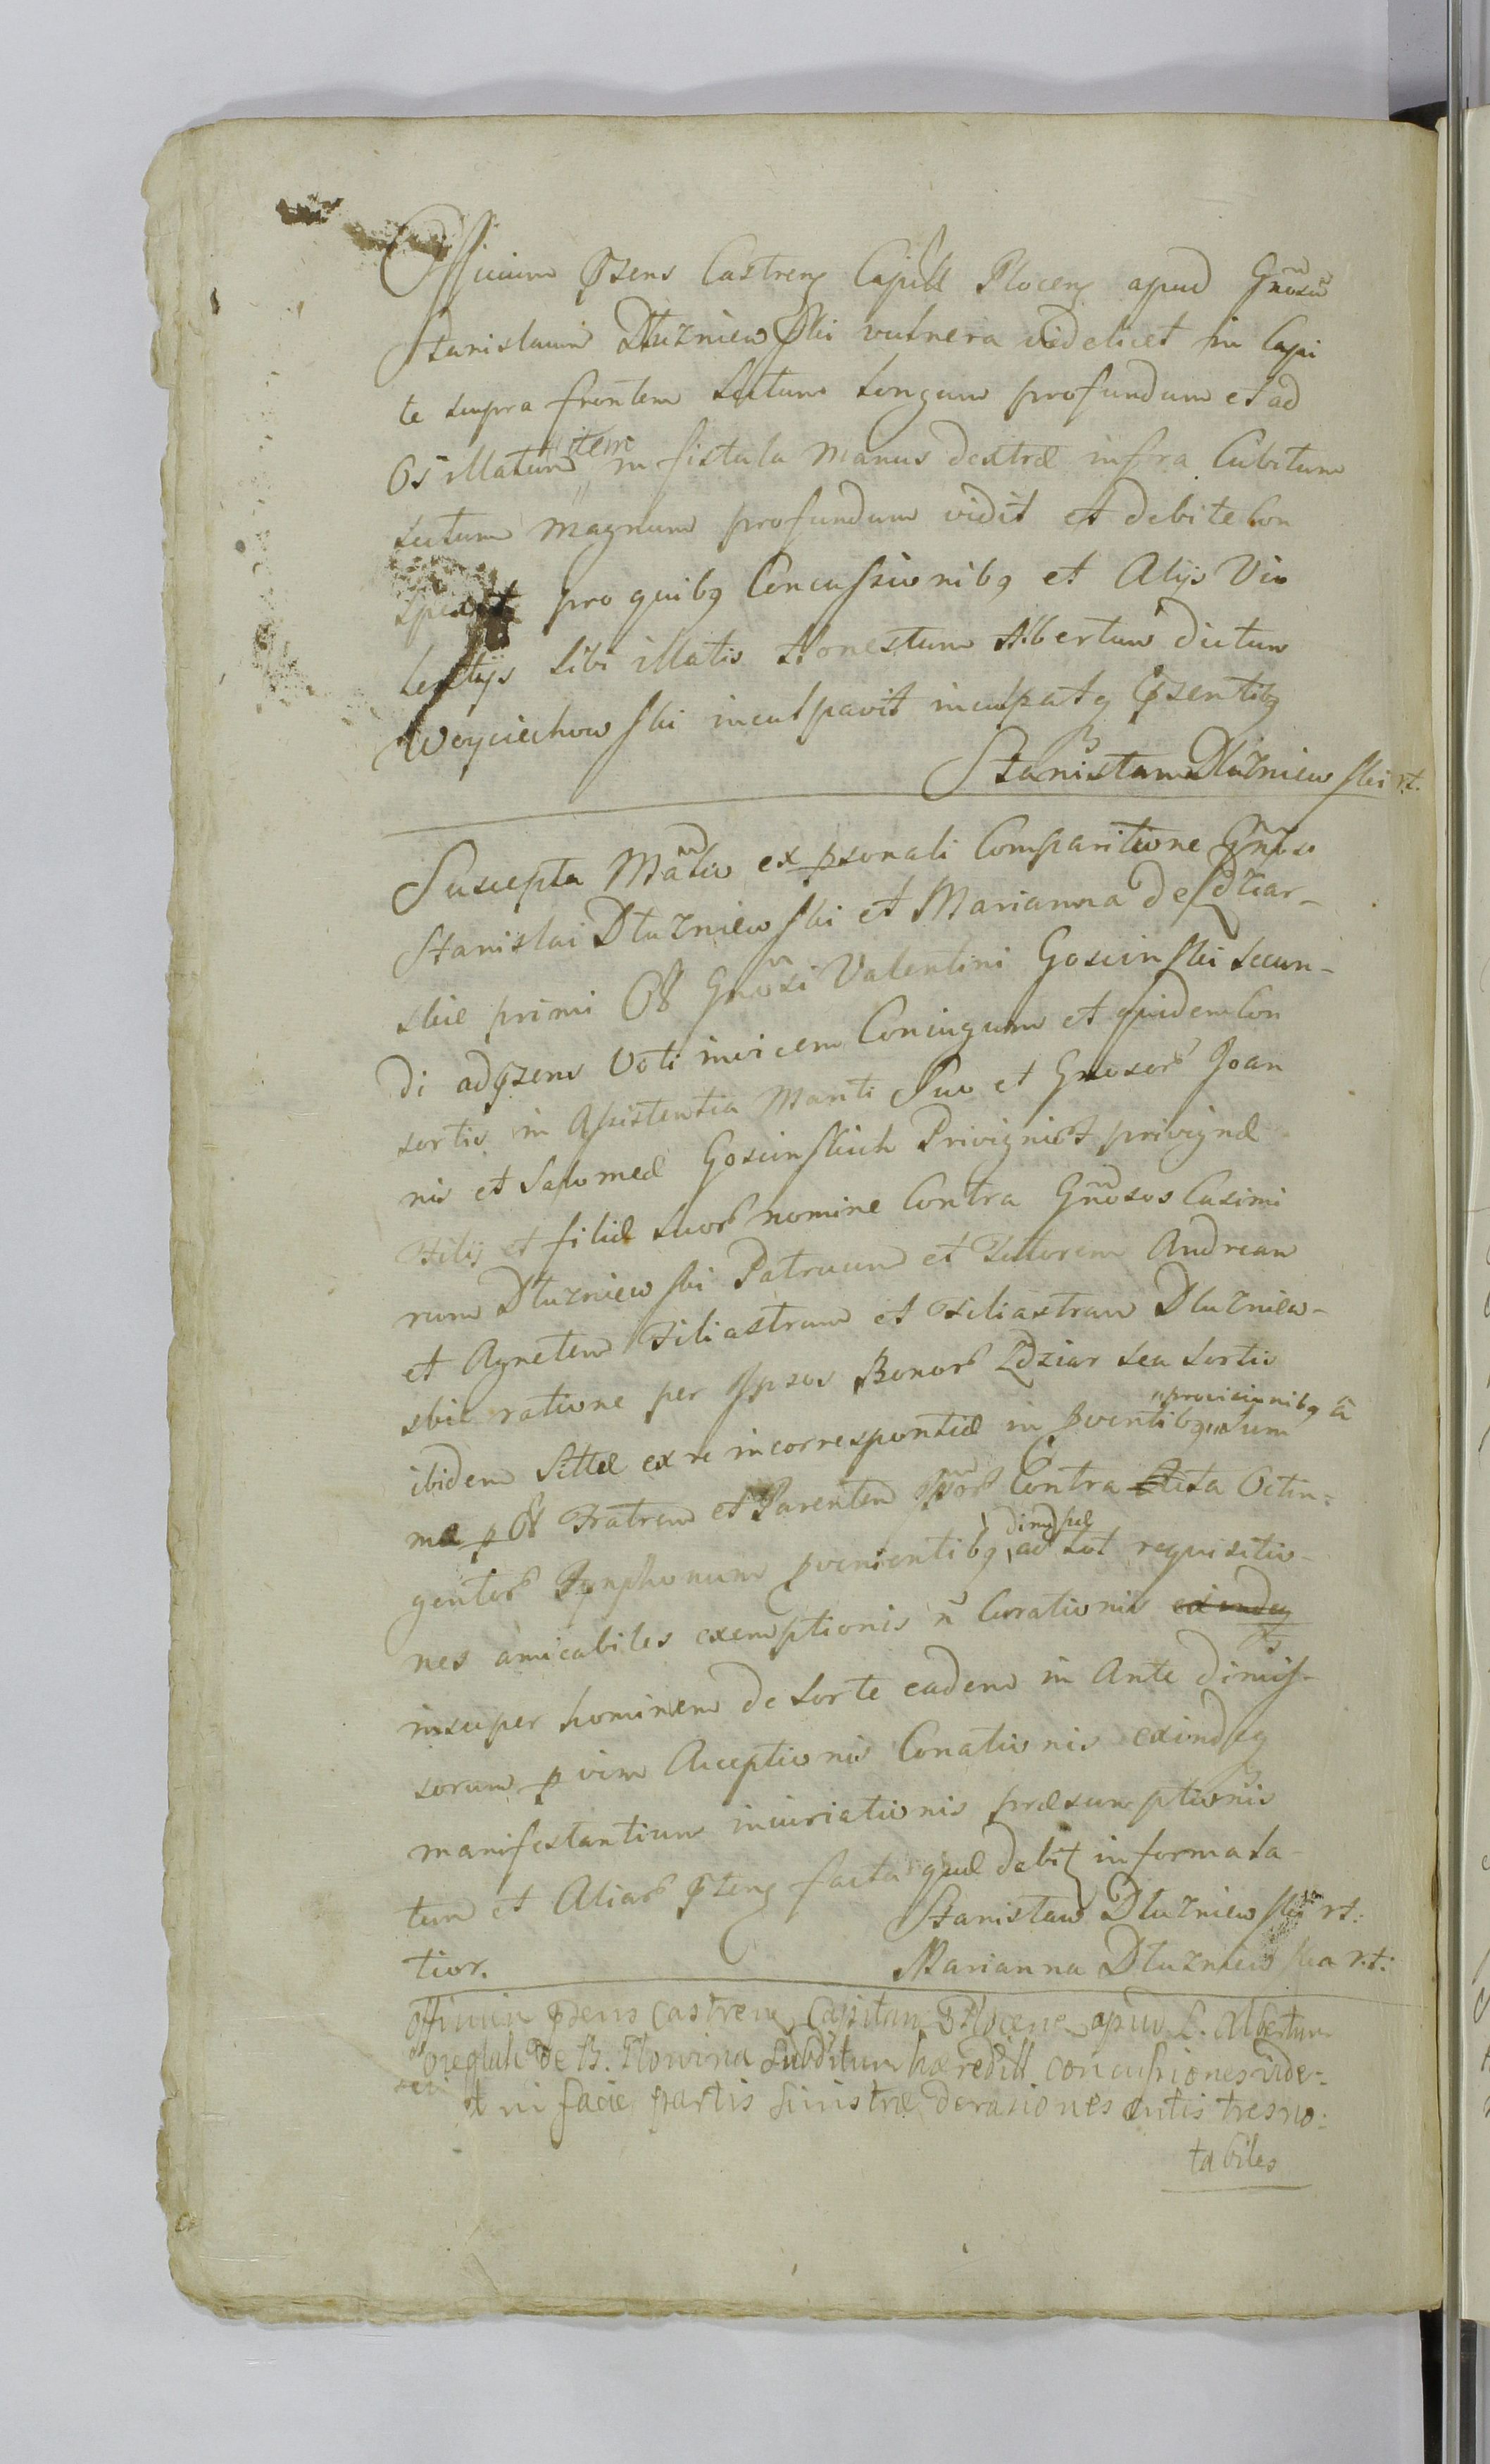 Officium Pzens Castrens Capitt Plocens apud Gnosū
Stanislaum Dłuzniewski vulnera videlicet in Capi
te supra frontem sectum longum profundum et ad
Os illatum item in fistula manus dextræ infra Cubitum
sectum magnum profundum vidit et debite Con
spexit pro quibq Concussionibq et Alijs Vio
lentijs sibi illatis Honestum Albertum dictum
Woyciechowski inculpavit inculpatq Pzentibq
Stanisław Dłuzniewski rt.
Suscepta Mātio ex psonali Comparitione Gnoso
Stanislai Dłuzniewski et Marianna de Zdziar-
skie primi Ol Gnosi Valentini Goscinski secun-
di adpzens Voti invicem Coniugum et quidem Con
sortis in Assistentia Mariti Suo et Gnosor Joan
nis et Salomeæ Goscinskich Privigni et privignæ
Filij et filiæ suor nomine Contra Gnosos Casimi
rum Dłuzniewski Patruum et Tutorem Andream
et Agnetem Filiastrum et Filiastram Dłuzniew-
skie ratione per Ipsos Bonor Zdziar seu Sortis
ibidem sittæ ex re incorrespontiæ in pventibq provisionibq à Sum
ma p Ol Fratrem et Parentem Suor Contracta Octin-
gentor Tynphonum pvenientibq ad sot requisitio-
nes amicabiles exemptionis ñ Curationis
insuper hominem de sorte eadem in Ante dimis-
sorum p vim Acceptionis Conationis exindeq
manifestantium iniuriationis præsumptionis
tum et Aliar Pzens facta quæ debit informata-
tior.
Stanisław Dłuzniewski rt:
Marianna Dłuzniewska r.t:
Officium Pzens Castrens Capitan Plocens apud L. Albertum
de B. Słowina Subditum hæreditt concussiones vide-
t in facie partis sinistræ derasiones cutis tres no-
tabiles